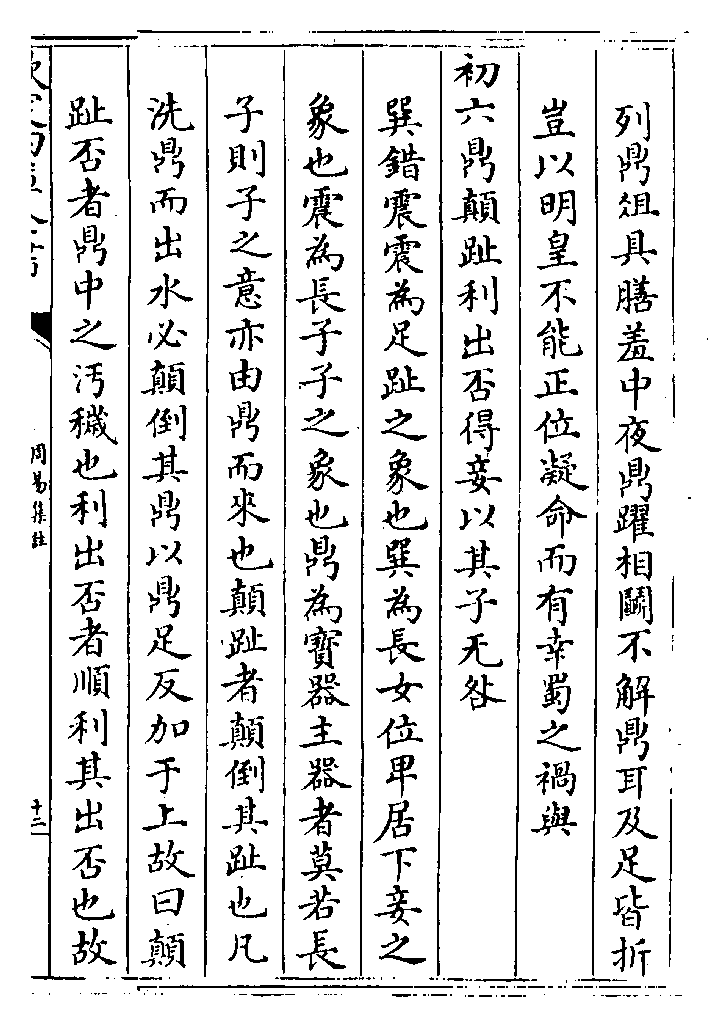 列鼎俎具膳羞中夜鼎躍相鬬不解鼎耳及足皆折
豈以明皇不能正位凝命而有幸蜀之禍與
初六鼎顛趾利出否得妾以其子无咎
巽錯震震為足趾之象也巽為長女位卑居下妾之
象也震為長子子之象也鼎為寳器主器者莫若長
子則子之意亦由鼎而來也顛趾者顛倒其趾也凡
洗鼎而出水必顛倒其鼎以鼎足反加于上故曰顛
趾否者鼎中之汚穢也利出否者順利其出否也故
周易集註
十二